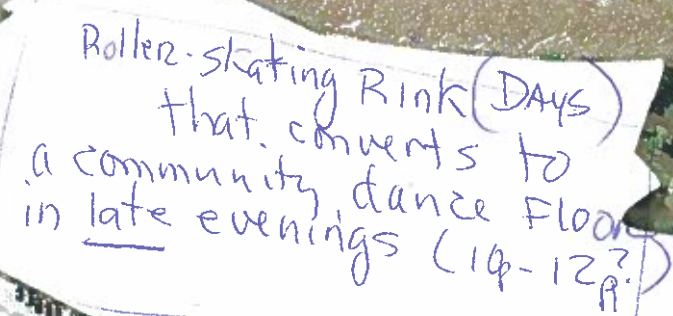 Roller-skating Rink (DAYS)
that converts to
a community dance Floor
in late evenings